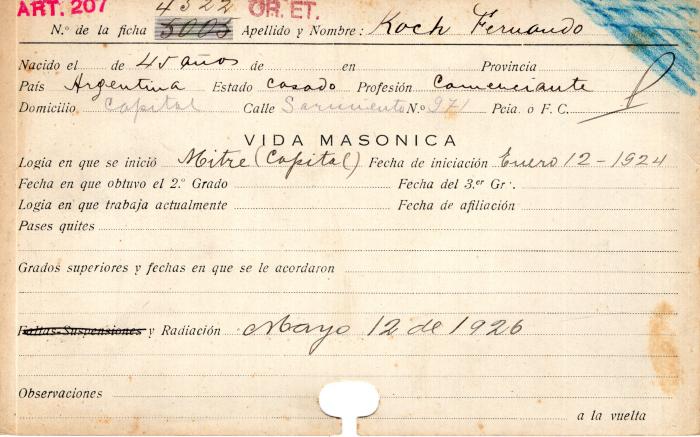 ART. 207 4322 OR. ET.
N.º de la ficha 5005 Apellido y Nombre: Koch Fernando
Nacido el de 45 años de en Provincia
País Argentina Estado casado Profesión Comerciante
Domicilio Capital Calle Sarmiento N.º 971 Pcia. ó F. C.
VIDA MASONICA
Logia en que se inició Mitre (Capital) Fecha de iniciación Enero 12-1924
Fecha en que obtuvo el 2.º Grado Fecha del 3.er Gr.
Logia en que trabaja actualmente Fecha de afiliación
Pases quites
Grados superiores y fechas en que se le acordaron
Faltas-Suspensiones y Radiación Mayo 12 de 1926
Observaciones
a la vuelta